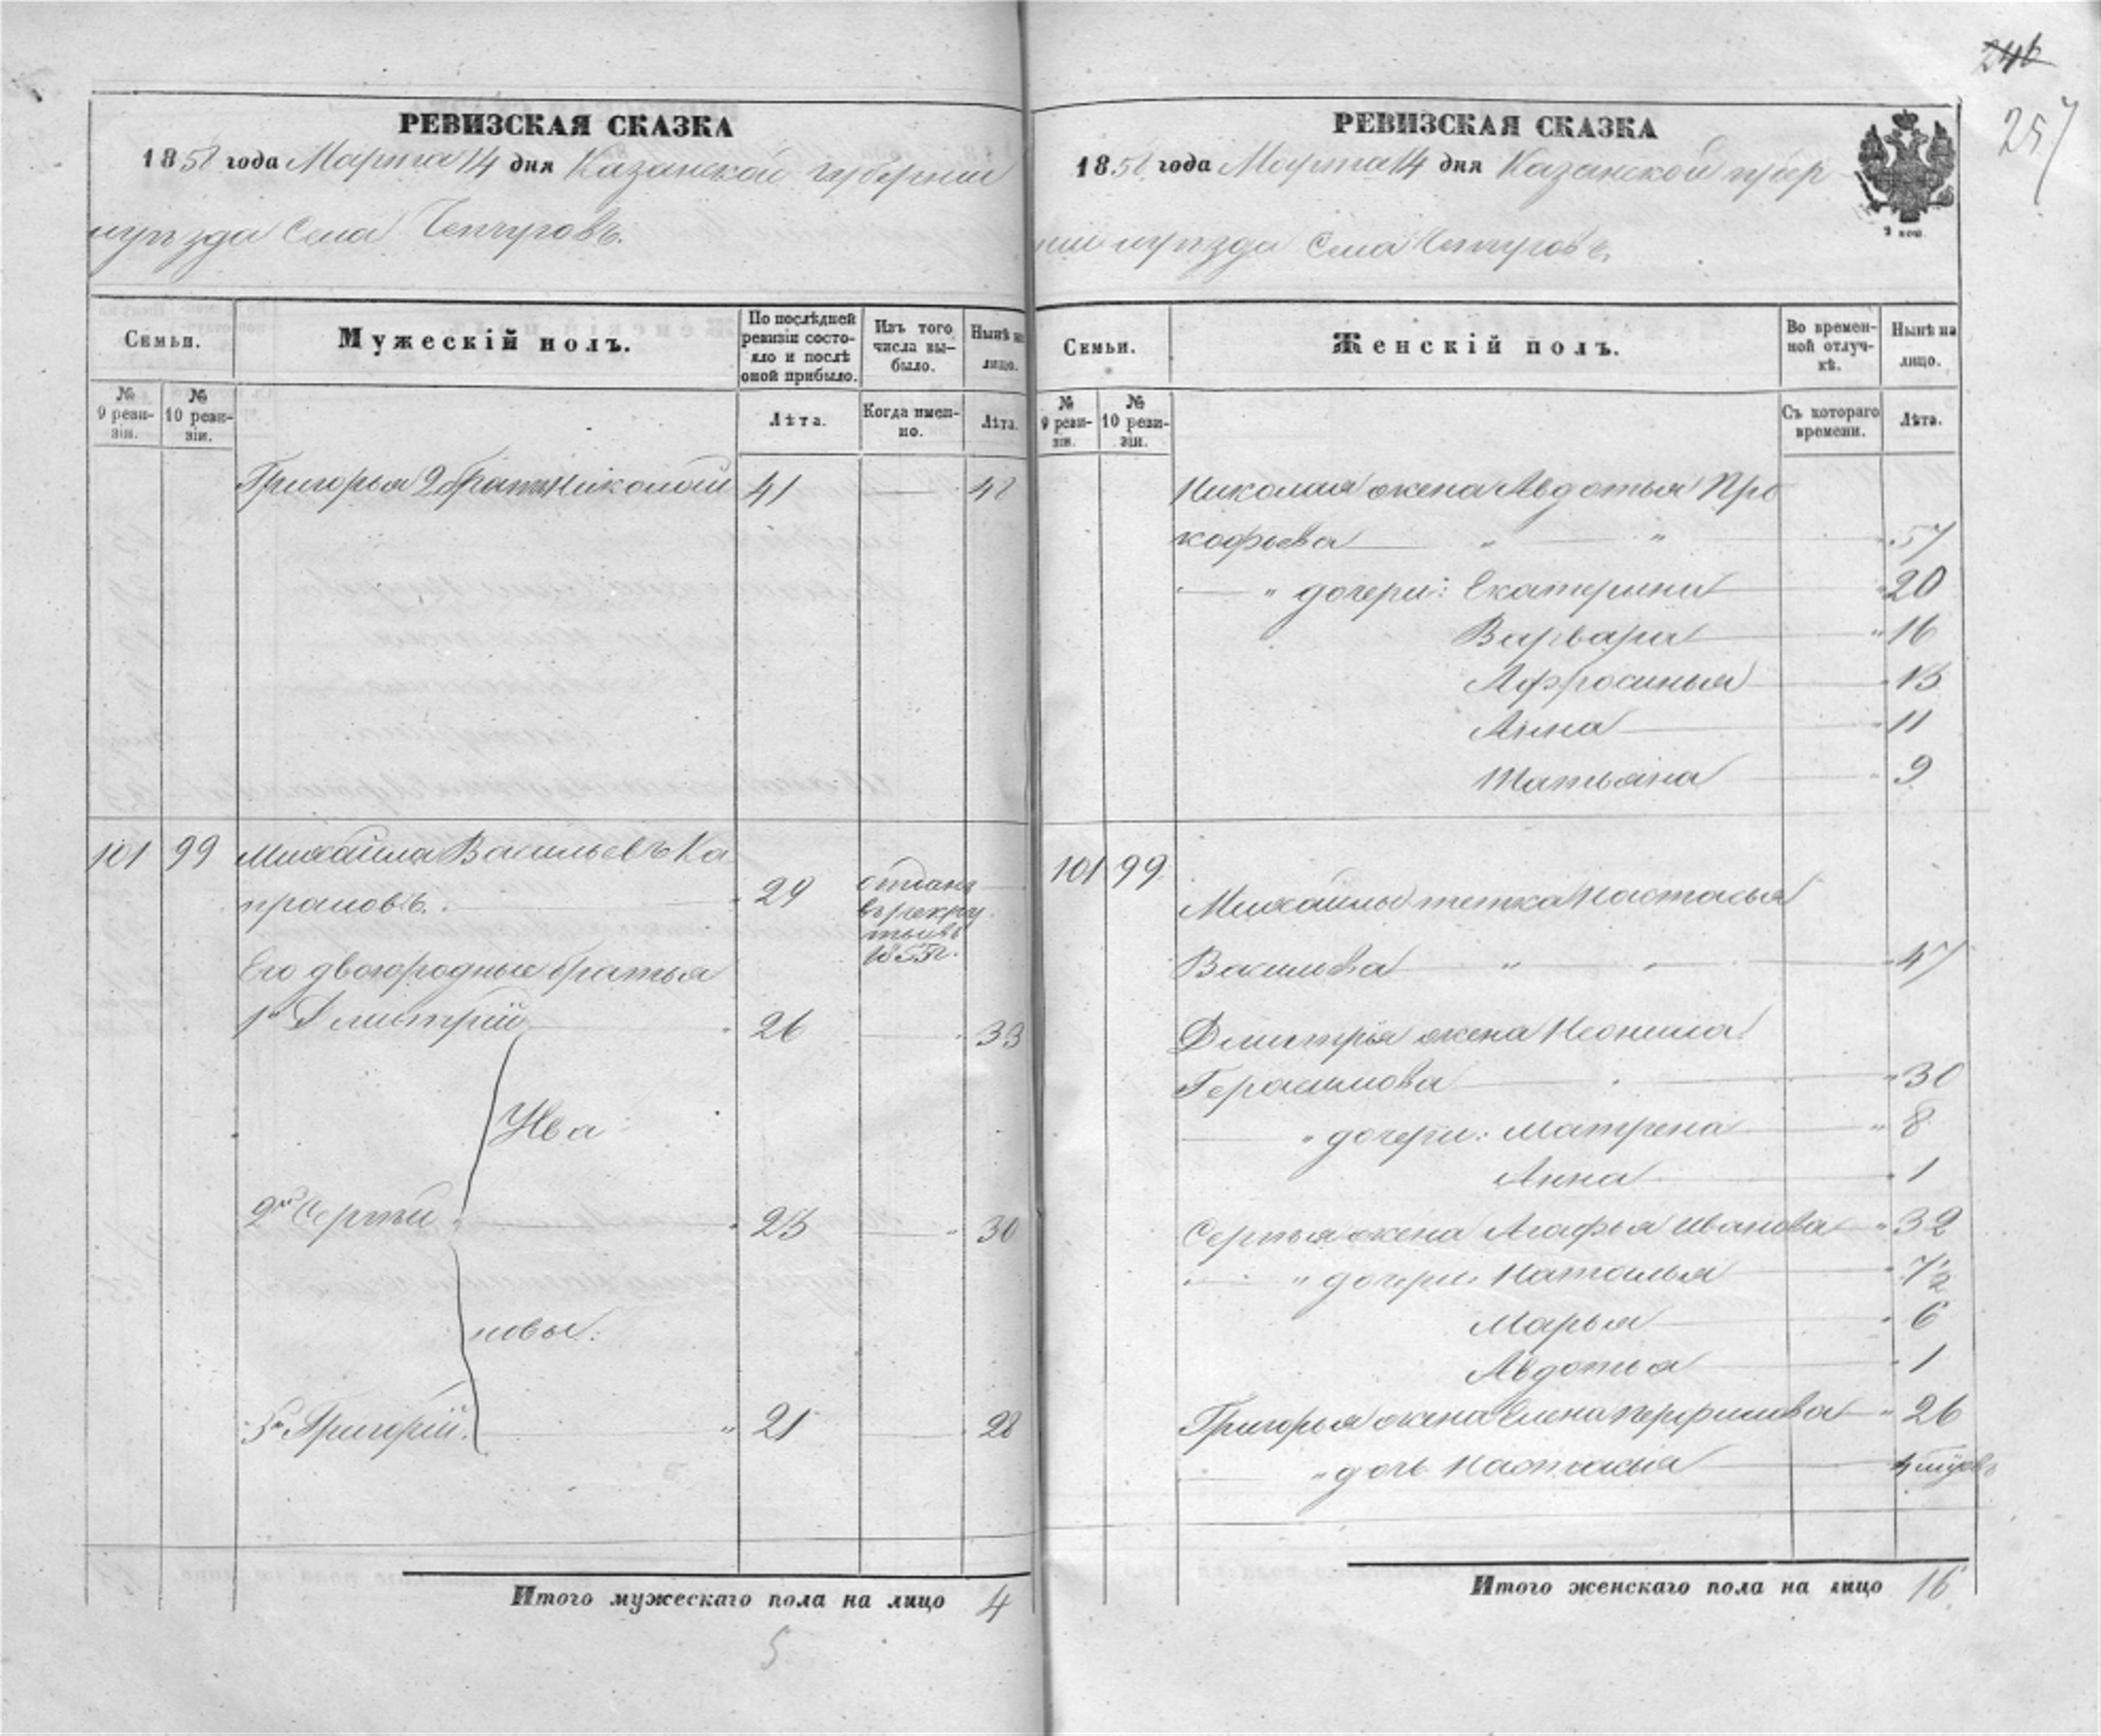 246
257
РЕВИЗСКАЯ СКАЗКА
1858 года Марта 14 дня Казанской губернiи
и уѣзда Села Чепчуговъ.
Семьи.
Мужескiй полъ.
По послѣдней ревизiи состояло и послѣ оной прибыло.
Изъ того числа выбыло.
Нынѣ на лицо.
№ 9 ревизiи.
№ 10 ревизiи.
Лѣта.
Когда именно.
Лѣта.
Григорья 2 братъ Николай 41 — 48
101 99 Михайла Васильевъ Ка
29 отданъ
въ рекру
ты въ
1855 г.
Его двоюродные братья
1й Дмитрiй 26 33
Ива
2й Сергѣй 23 30
новы.
3й Григорiй. 21 28
Итого мужескаго пола на лицо 4
5
РЕВИЗСКАЯ СКАЗКА
1858 года Марта 14 дня Казанской губер
нiи и уѣзда Села Чепчуговъ.
2 коп.
Семьи.
Женскiй полъ.
Во временной отлучкѣ.
Нынѣ на лицо.
№ 9 ревизiи.
№ 10 ревизiи.
Съ котораго времени.
Лѣта.
Николая жена Авдотья Про
кофьева " " 57
" дочери: Екатерина 20
Варвара " 16
Афросинья 13
Анна 11
Татьяна 9
101 99
Михайлы тетка Настасья
Васильева " " 47
Дмитрiя жена Неонила
Герасимова " 30
" дочери: Матрена " 8
Анна 1
Сергѣя жена Агафья Иванова " 32
" дочери: Наталья 7½
Марья 6
Авдотья 1
Григорья жена Елена Перфилова " 26
" дочь Настасья
Итого женскаго пола на лицо 16